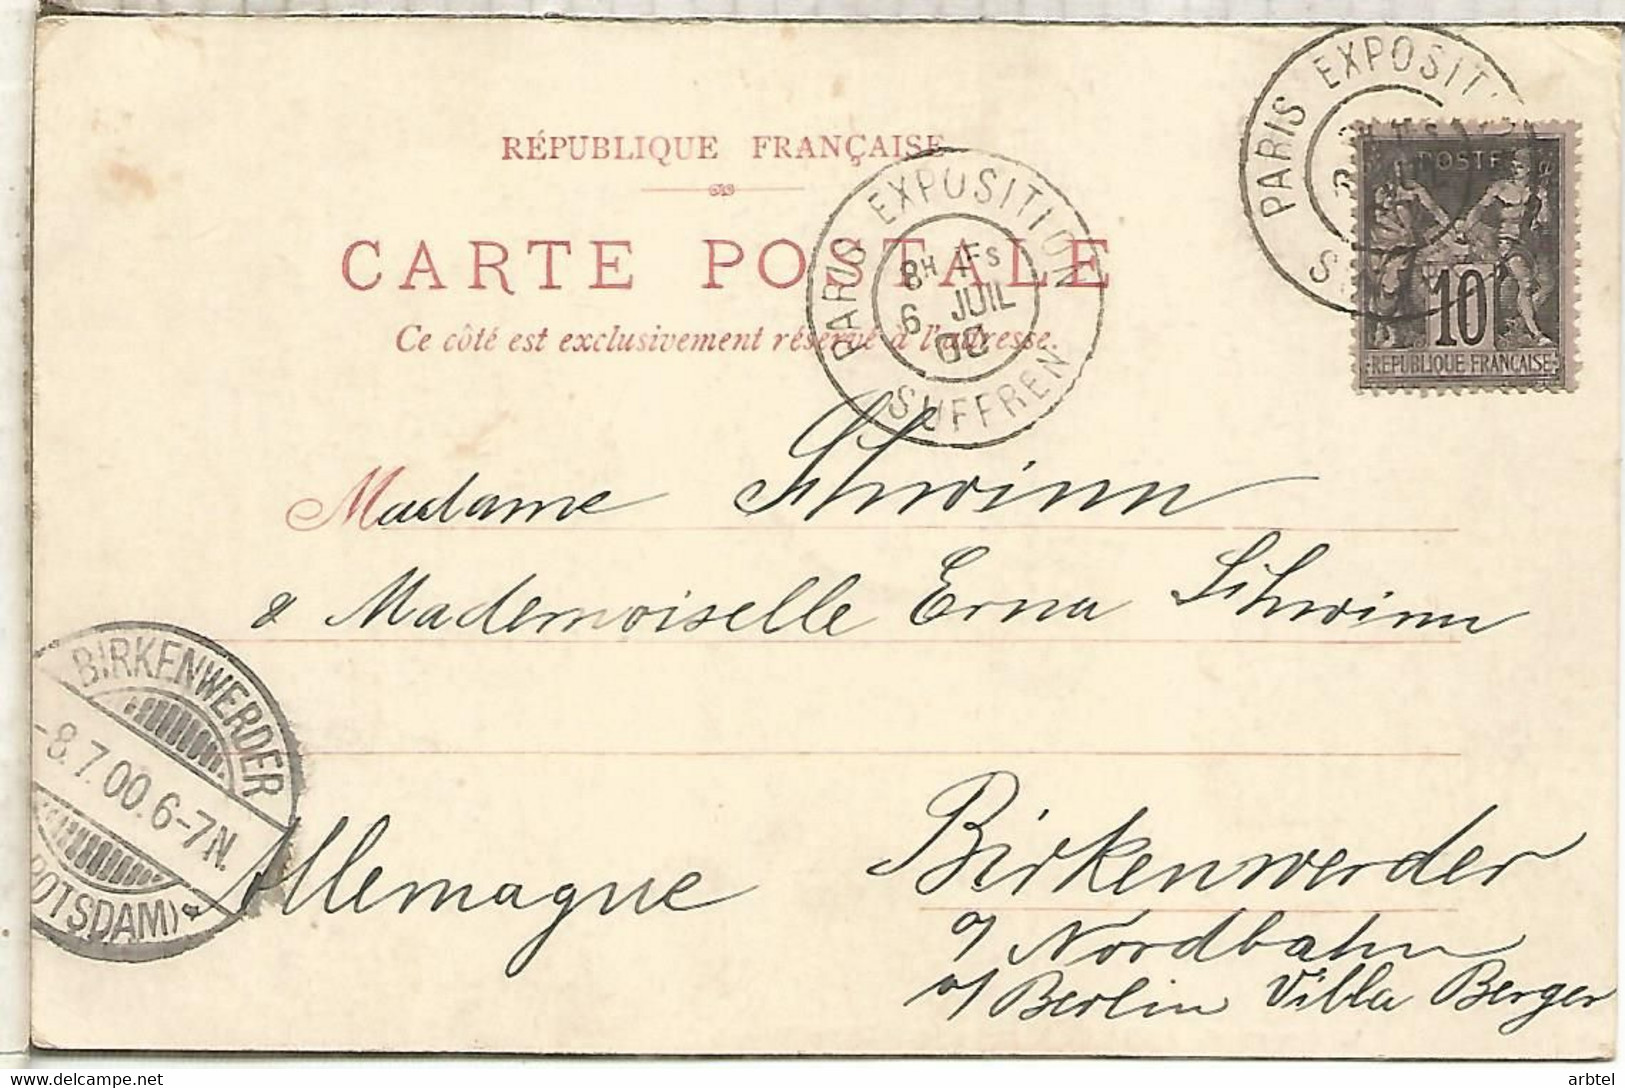 RÉPUBLIQUE FRANÇAISE
CARTE POSTALE
Ce côté est exclusivement réservé à l'adresse.
PARIS EXPOSITION
8H 1FS
6 JUIL
00
SUFFREN
PARIS EXPOSITI
S
POSTE
10
REPUBLIQUE FRANÇAISE
Madame Schwinn
& Mademoiselle Erna Schwinn
BIRKENWERDER
-8.7.00.6-7N.
(POTSDAM)
Allemagne
Birkenwerder
a/ Nordbahn
b/ Berlin Villa Berger
arbtel